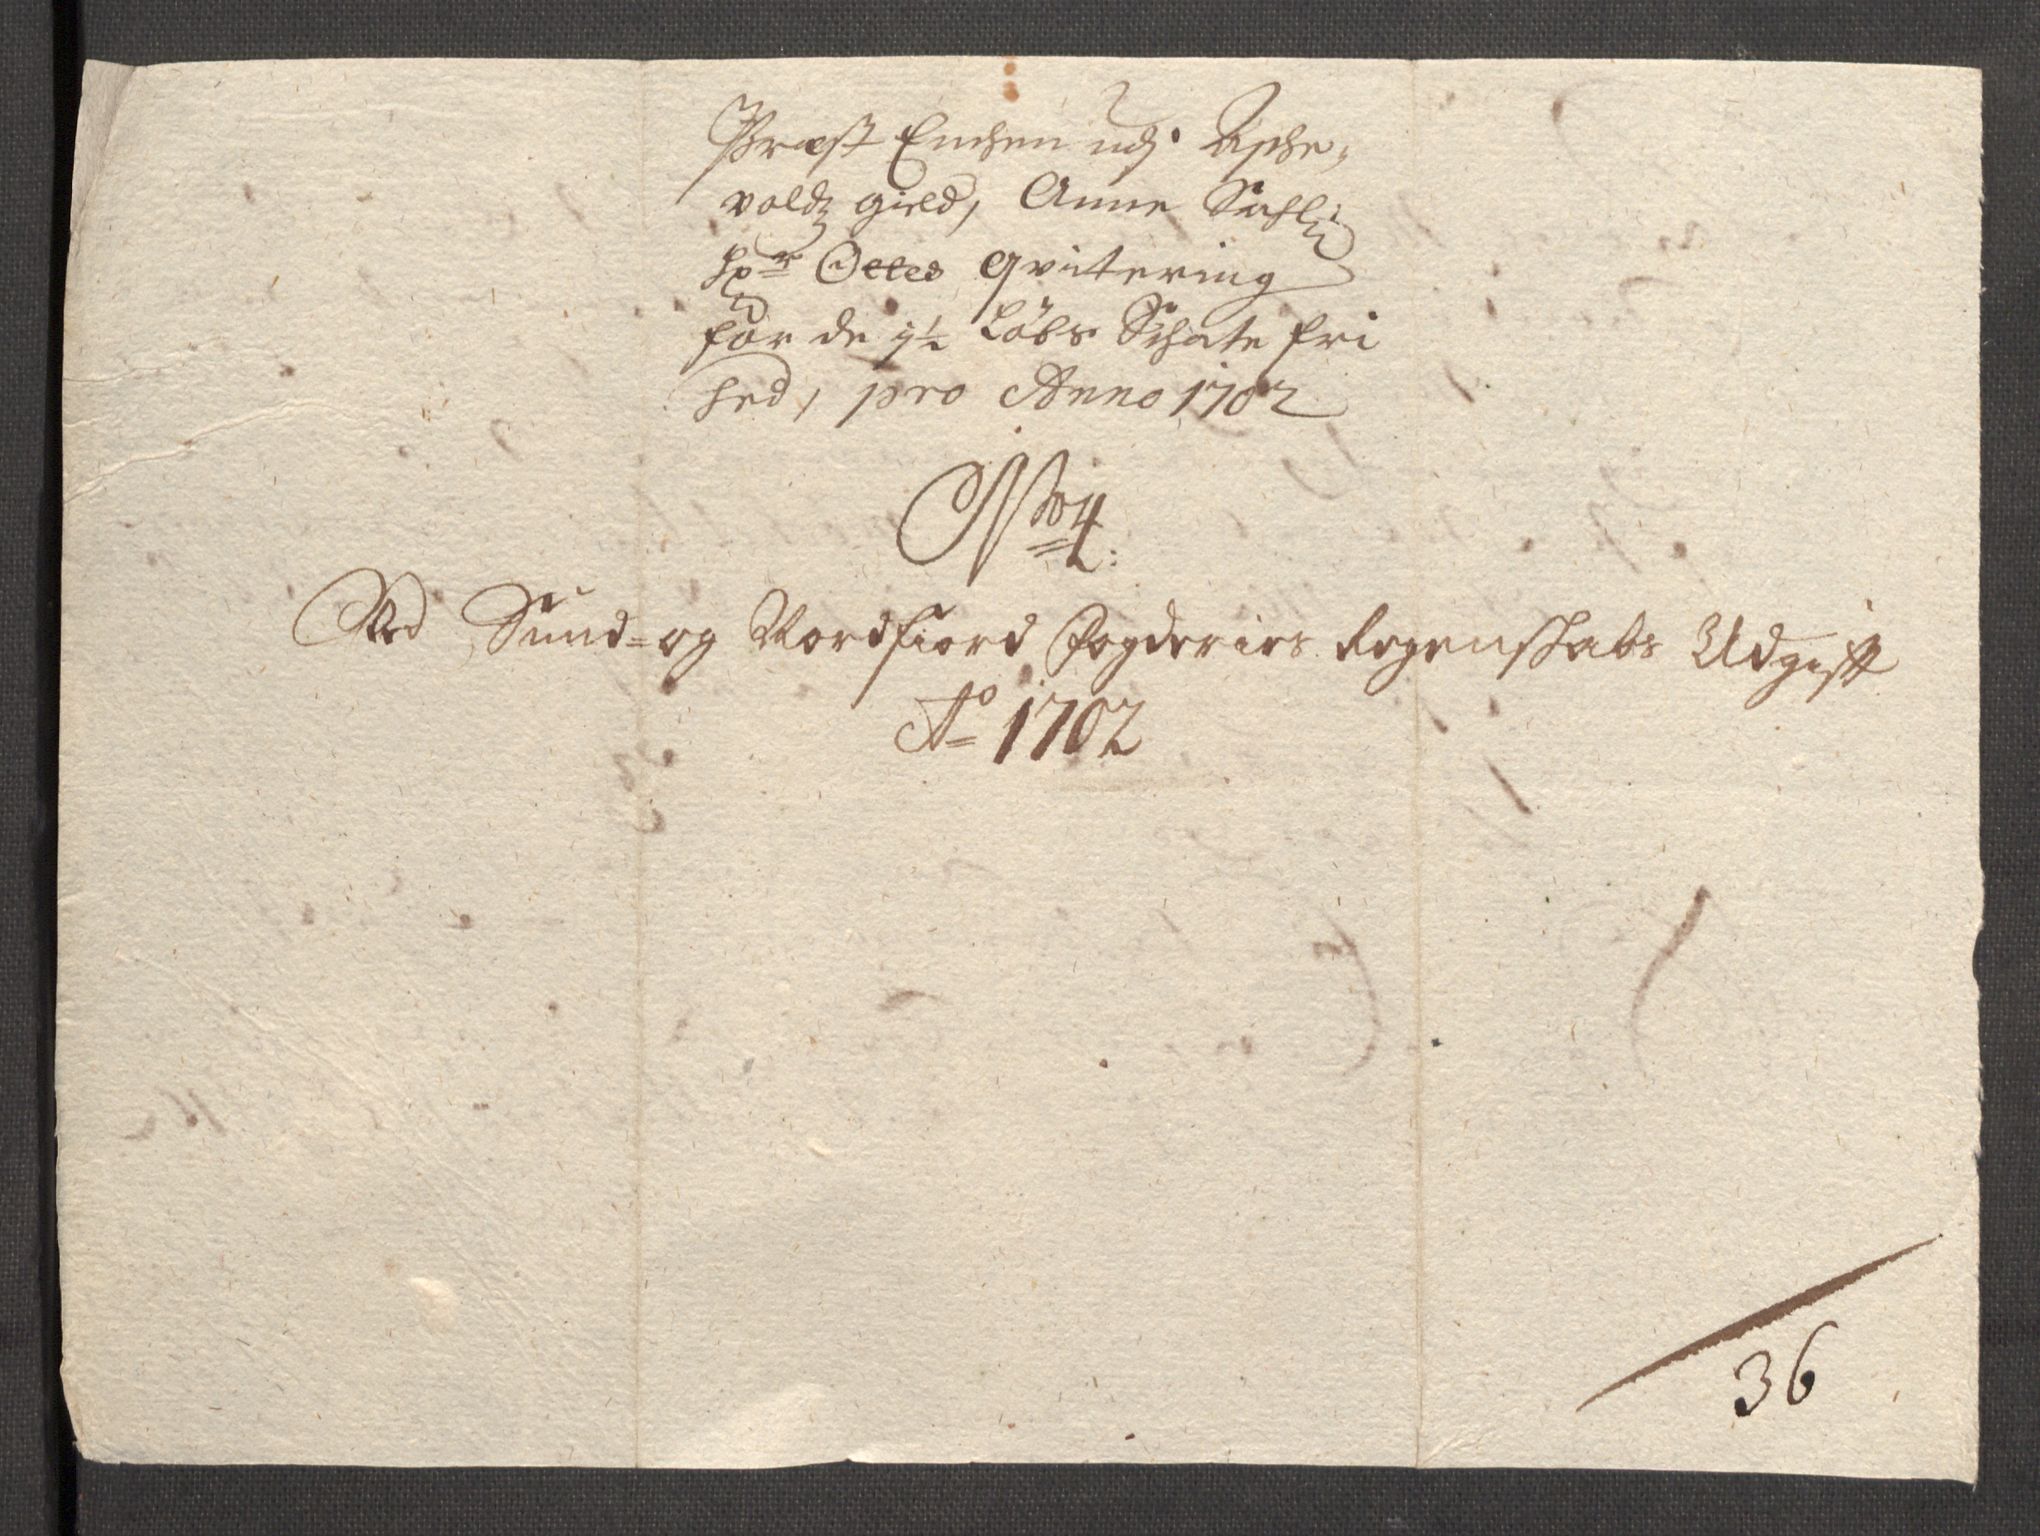 Præst Enchen udj Asche,
voldz gield, Anne Sahl
Hr Ottes qvitering
for de 1½ Løbs Schate fri
hed, pro Anno 1702
No 4:
Ved Sund- og Nordfiord Fogderies Regenskabs Udgift
Ao 1702
36